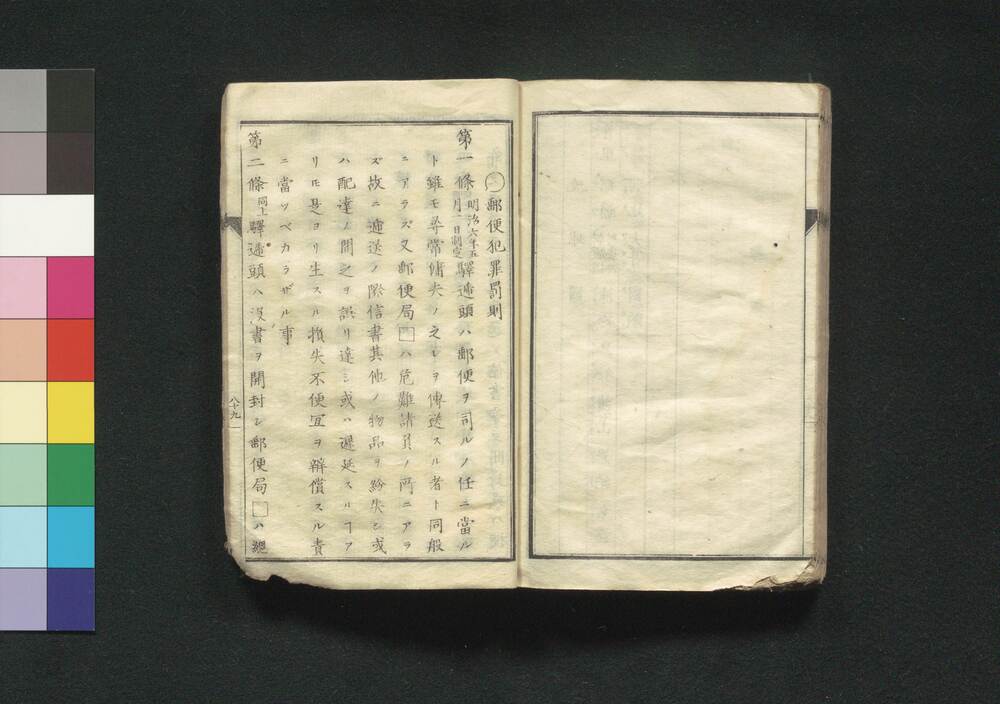 ㊀郵便犯罪罰則
第一條 明治六年五月一日制定 驛逓頭ハ郵便ヲ司ルノ任ニ當ル
ト雖モ尋常傭夫ノ之レヲ傳送スル者ト同般
ニアラズ又郵便局□ハ危難請負ノ所ニアラ
ズ故ニ逓送ノ際信書其他ノ物品ヲ紛失シ或
ハ配達ノ間之ヲ誤リ違ヒ或ハ遲延スルヿア
リ𪜈是ヨリ生スル損失不便宜ヲ辨償スル責
ニ當ツベカラザル事
第二條 同上 驛逓頭ハ没書ヲ開封シ郵便局□ハ
八十九